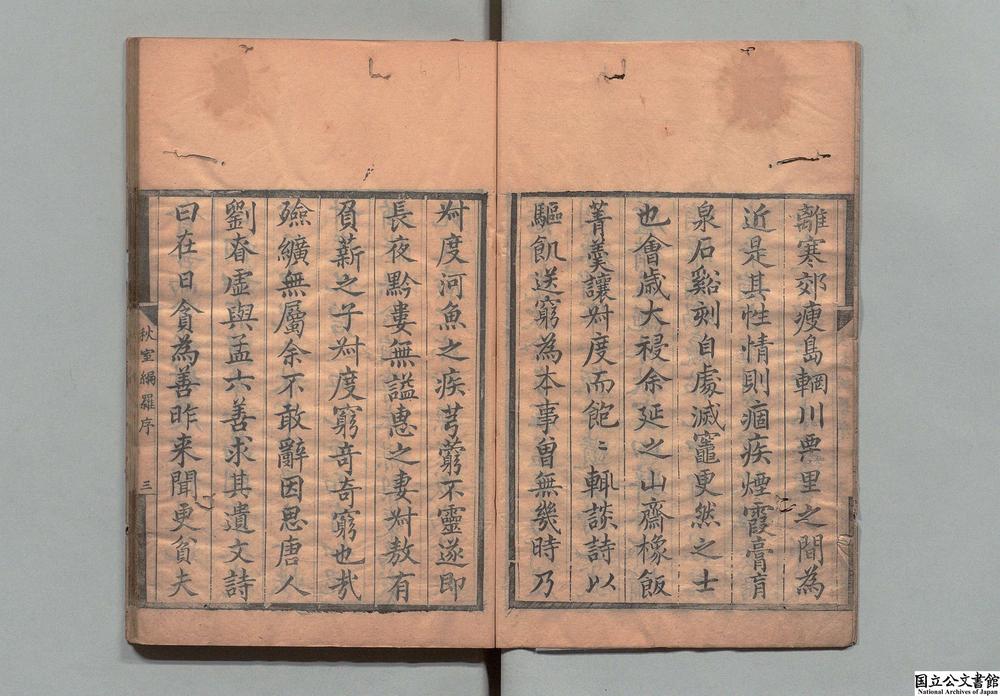 離寒郊瘦島輞川無里之間為
近是其性情則痼疾煙霞膏肓
泉石谿刻自處滅竈更然之士
也會歲大祲余延之山齋橡飯
菁羹讓叔度而飽〻輒談詩以
驅飢送窮為本事曽無幾時乃
叔度河魚之疾芎藭不靈遂即
長夜黔婁無諡惠之妻叔敖有
負薪之子叔度窮竒竒窮也㢤
殮纊無屬余不敢辭因思唐人
劉眘虛與孟六善求其遺文詩
曰在日貪為善昨来聞更貧夫
秋室編羅序
三
国立公文書館
National Archives of Japan